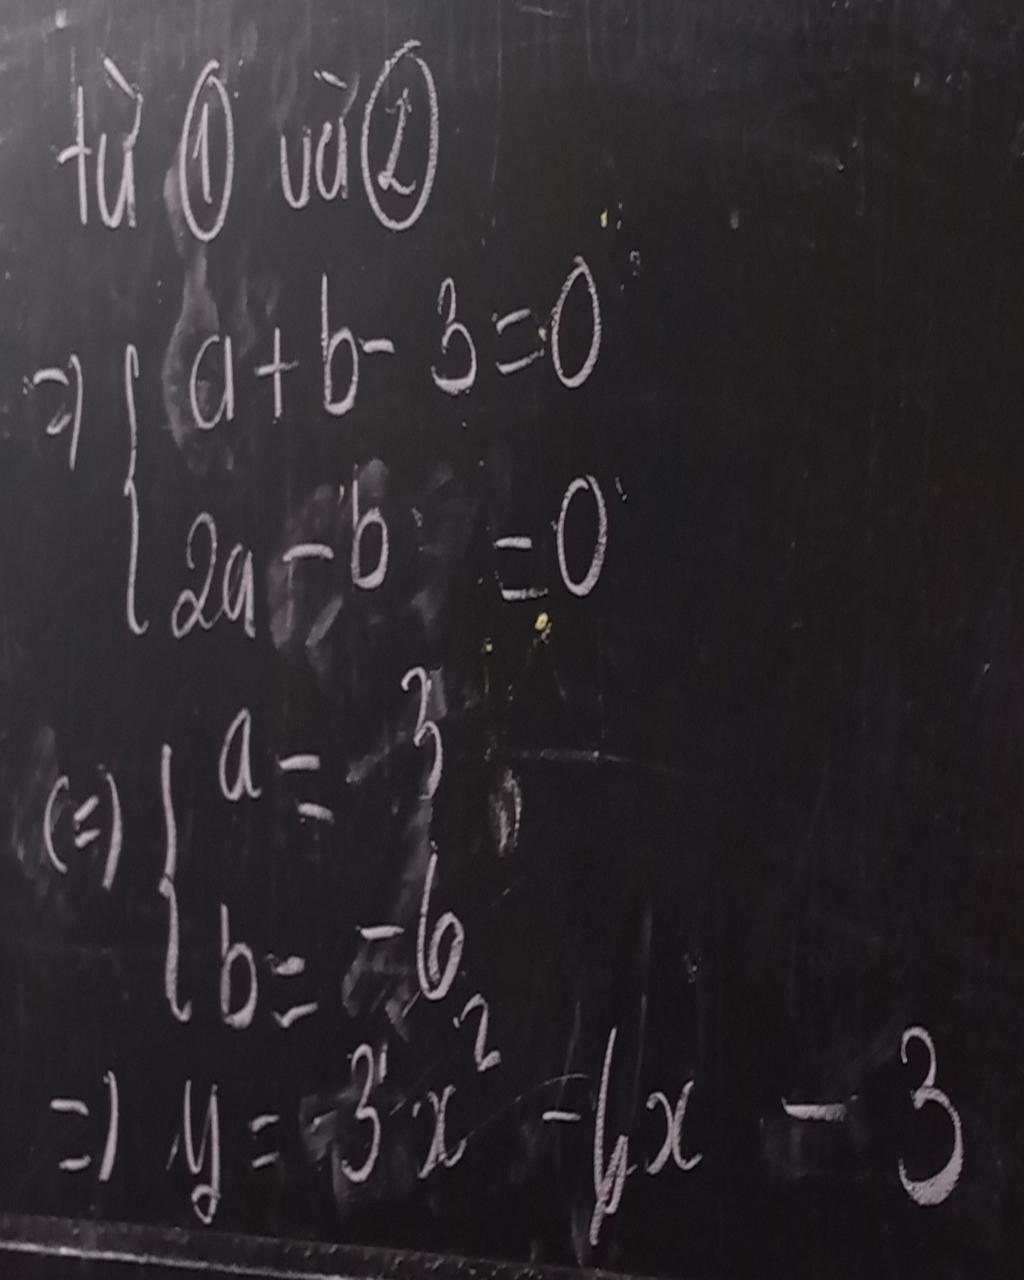 từ ① và ②
=> { a + b - 3 = 0
2a - b = 0
(=) { a = 3
b = -6
=> y = -3x² - 6x - 3